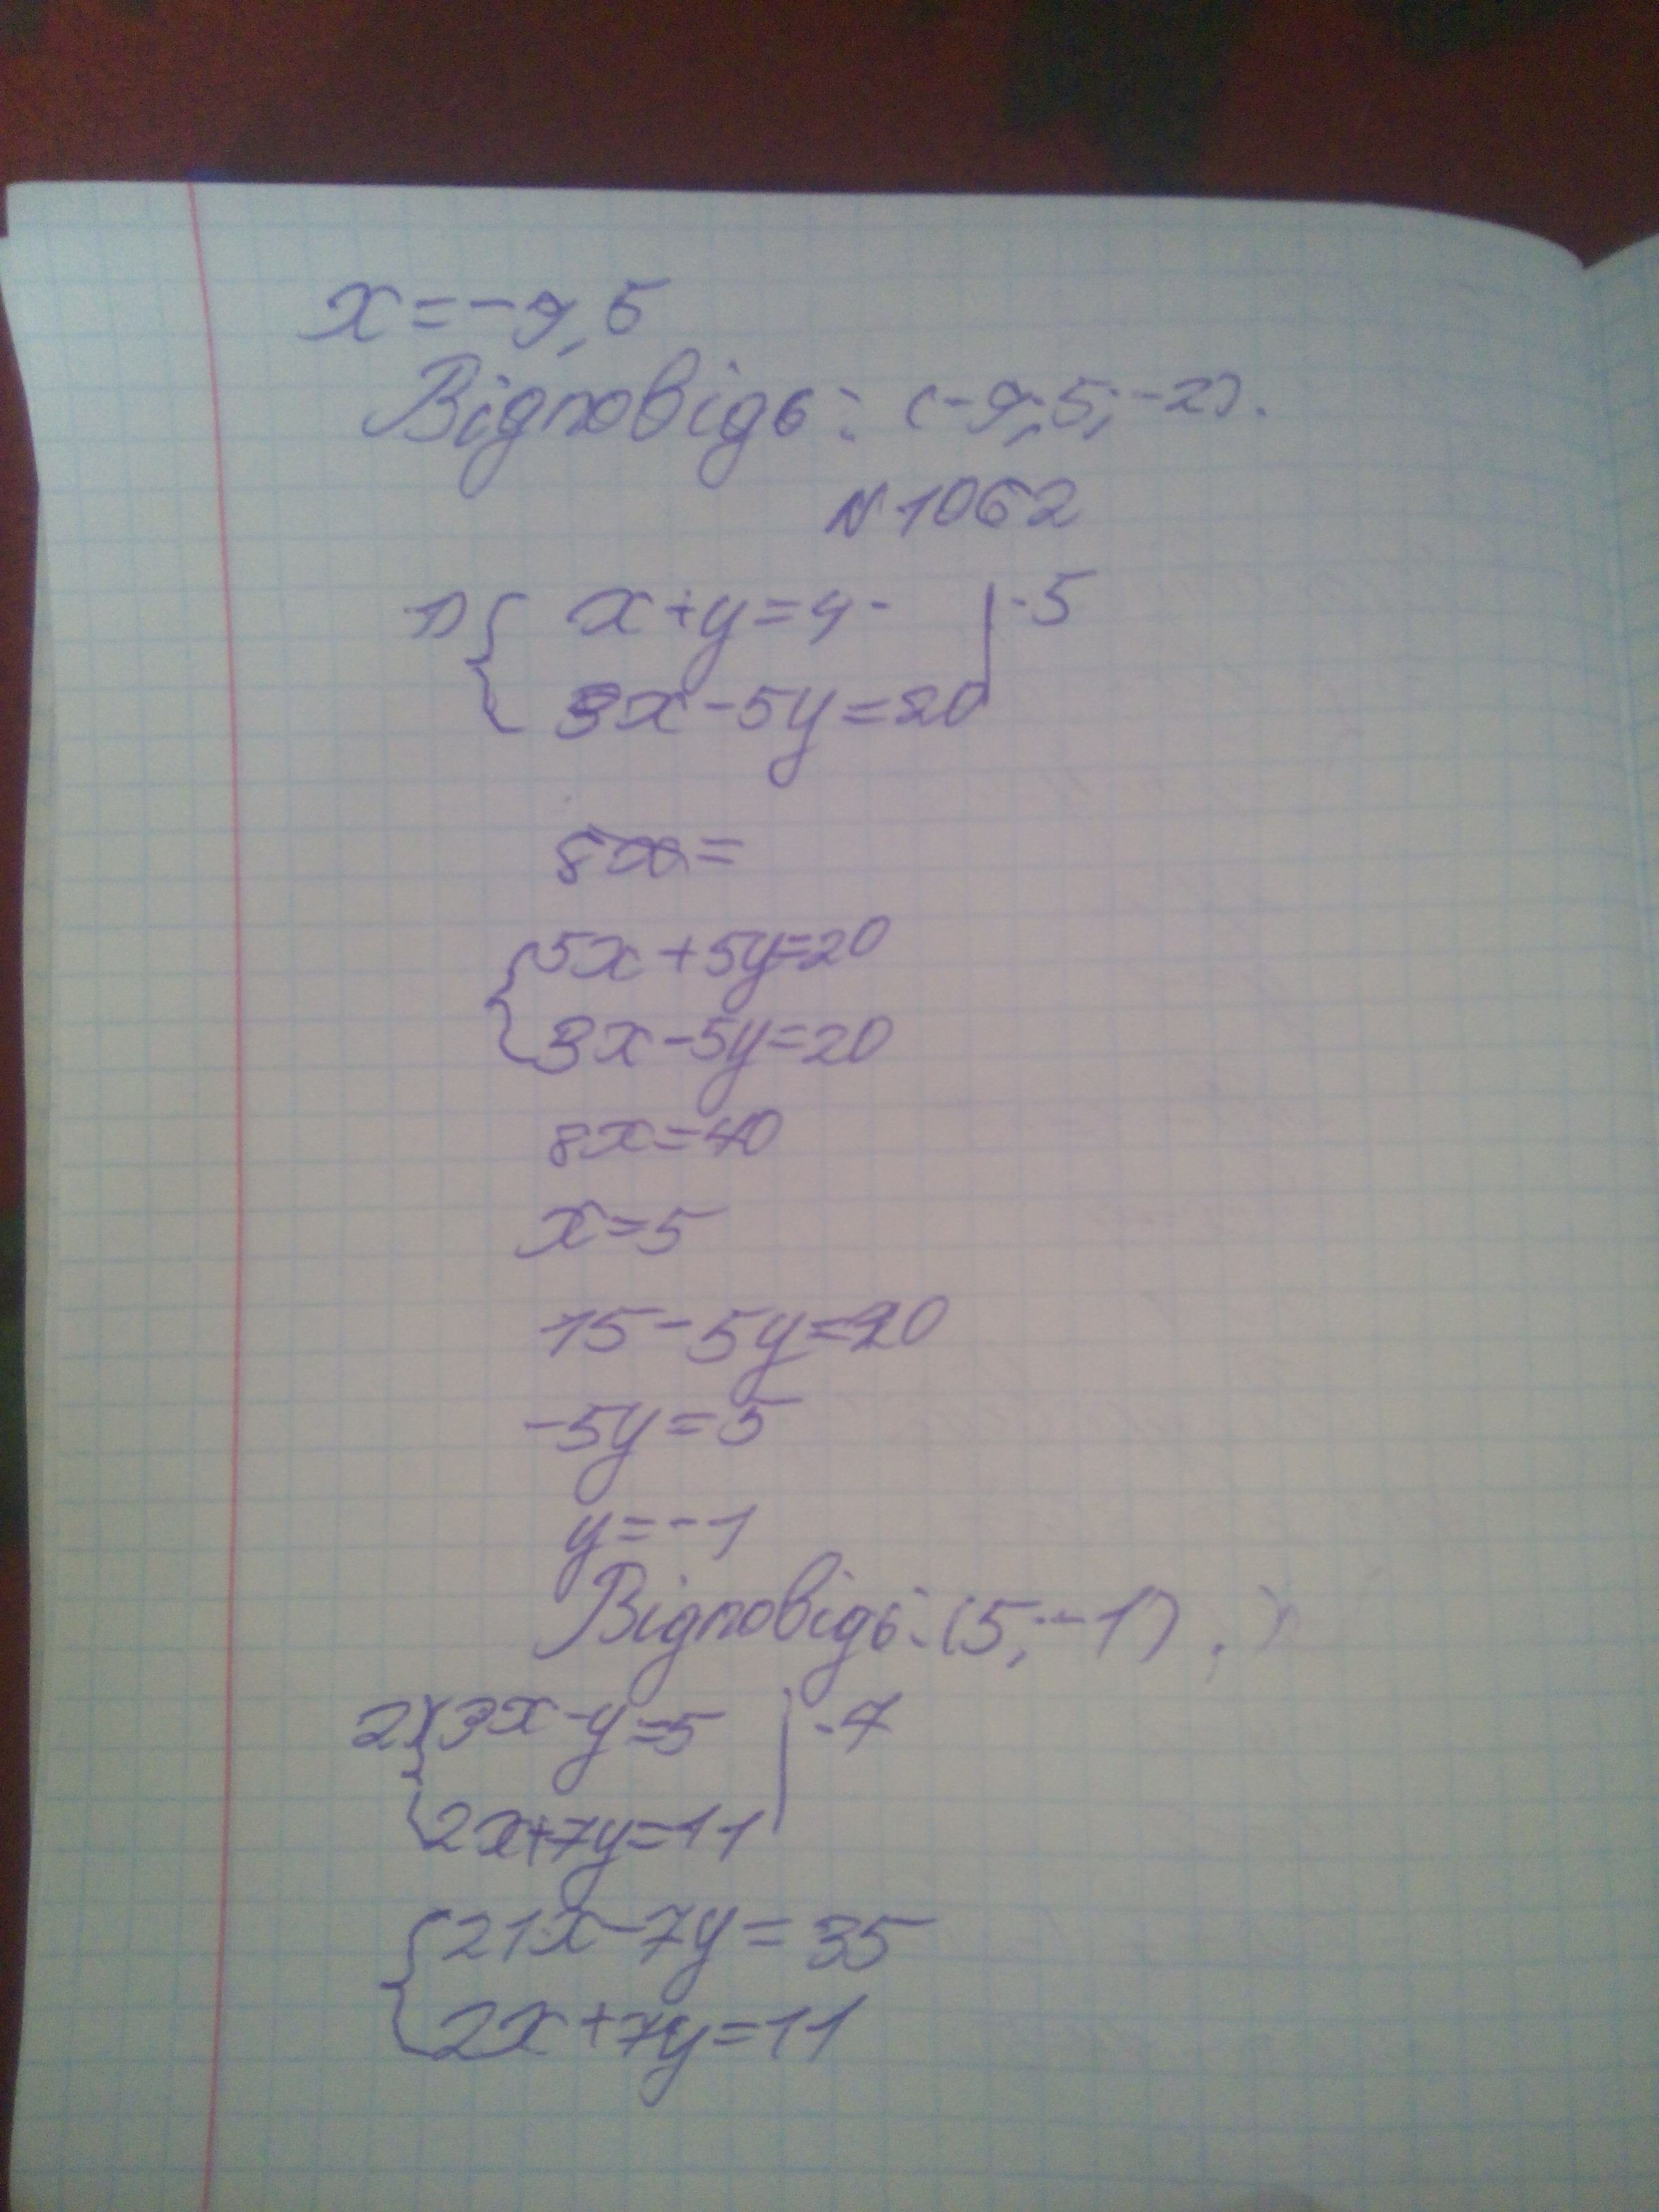 x=-9,5
Відповідь: (-9,5; -2).
N 1062
1) { x+y=4 | ·5
3x-5y=20
8x=
{ 5x+5y=20
3x-5y=20
8x=40
x=5
15-5y=20
-5y=5
y=-1
Відповідь: (5; -1).
2) { 3x-y=5 | ·7
2x+7y=11
{ 21x-7y=35
2x+7y=11